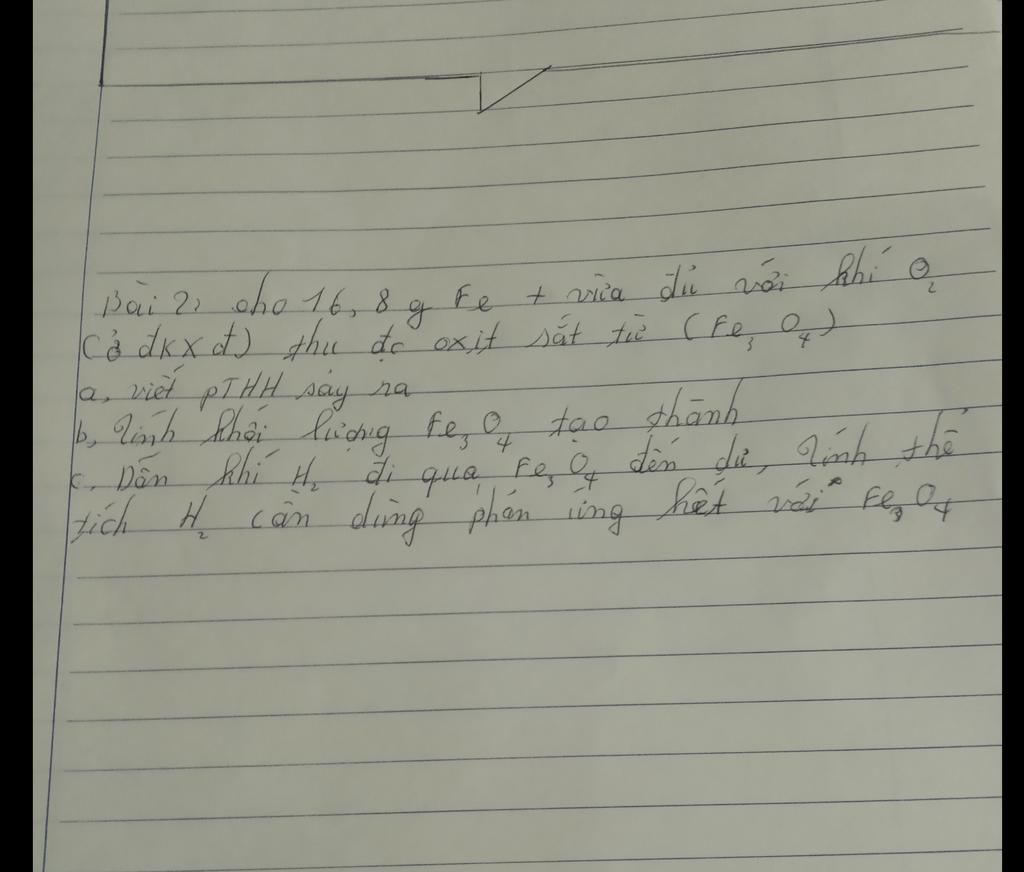 Bài 2: cho 16,8 g Fe + vừa đủ với khí O₂
(ở đk x đ) thu đc oxit sắt từ (Fe₃O₄)
a, viết PTHH sảy ra
b, Tính khối lượng Fe₃O₄ tạo thành
c, Dẫn khí H₂ đi qua Fe₃O₄ đến dư, Tính thể
tích H₂ cần dùng phản ứng hết với Fe₃O₄